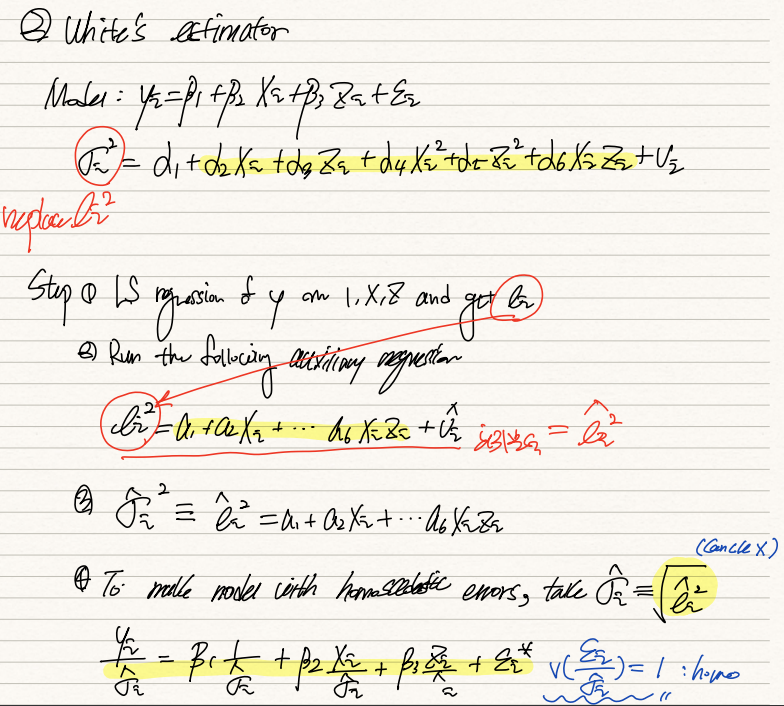 ② White's estimator
Model : yᵢ = β₁ + β₂ Xᵢ + β₃ Zᵢ + εᵢ
σᵢ² = d₁ + d₂Xᵢ + d₃ Zᵢ + d₄ Xᵢ² + d₅ Zᵢ² + d₆ Xᵢ Zᵢ + vᵢ
replace eᵢ²
Step ① LS regression of y on 1, X, Z and get eᵢ
② Run the following auxiliary regression
eᵢ² = a₁ + a₂ Xᵢ + ··· a₆ XᵢZᵢ + v̂ᵢ = êᵢ²
③ σ̂ᵢ² ≡ êᵢ² = a₁ + a₂ Xᵢ + ··· a₆ XᵢZᵢ
(Cancle X)
④ To make model with homoscedastic errors, take σ̂ᵢ ≡ √êᵢ²
yᵢ/σ̂ᵢ = β₁ 1/σ̂ᵢ + β₂ Xᵢ/σ̂ᵢ + β₃ Zᵢ/σ̂ᵢ + εᵢ* V(εᵢ/σ̂ᵢ) = 1 : homo